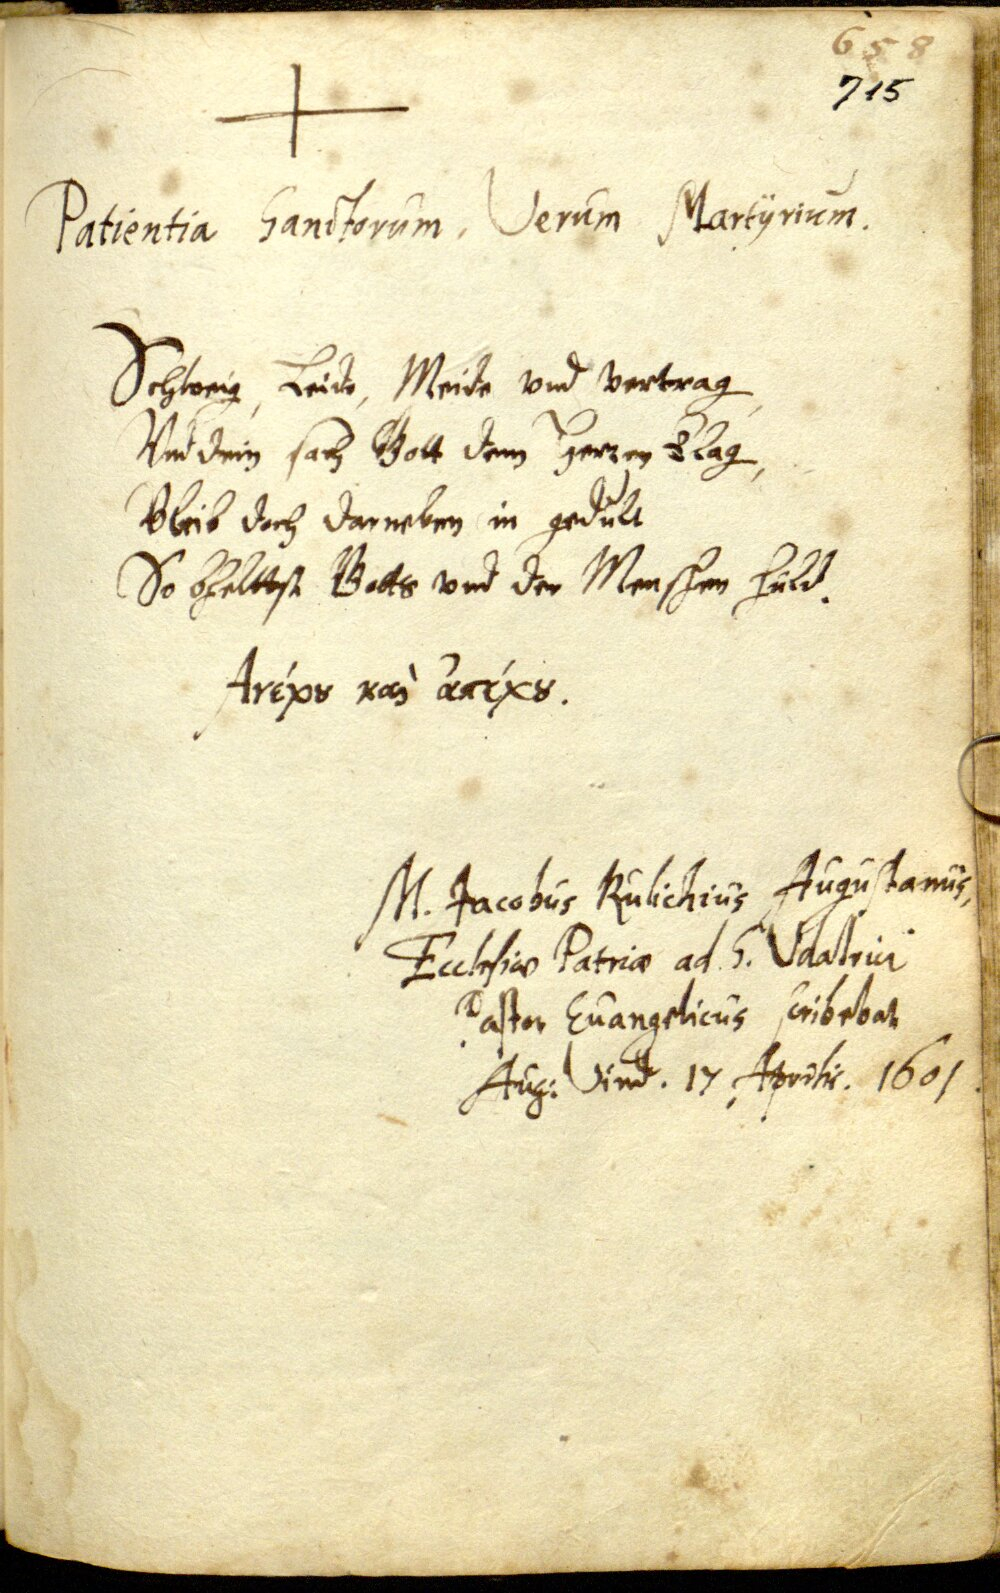 658
715
Patientia Sanctorum, Verum Martÿrium.
Schweig, Leide, Meide vnd vertrag,
Vnd dein sach Gott dem Herren klag,
Bleib doch darneben in gedult
So bheltest Gotts vnd der Menschen huld.
Ἀνέχȣ καὶ ἀπέχȣ.
M. Jacobus Rülichius Augustanus,
Ecclesiæ Patriæ ad S. Vdalrici
Pastor Euangelicus scribebat
Aug: Vind. 17 Aprilis. 1601.